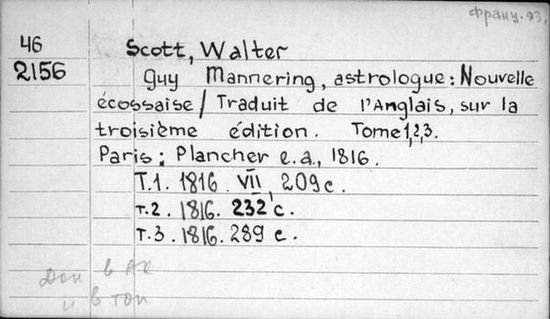 франц. 93.
46
2156
Scott, Walter
Guy Mannering, astrologue: Nouvelle
écossaise / Traduit de l'Anglais, sur la
troisième édition. Tome 1,2,3.
Paris: Plancher e.a., 1816.
T.1. 1816. VII, 209 c.
т.2. 1816. 232 c.
т.3. 1816. 289 c.
Доп в АК
и в топ